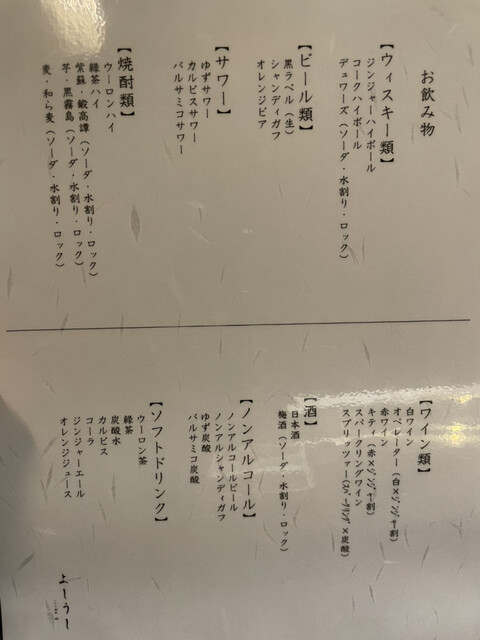 お飲み物
【ウィスキー類】
ジンジャーハイボール
コークハイボール
デュワーズ(ソーダ・水割り・ロック)
【ビール類】
黒ラベル(生)
シャンディガフ
オレンジビア
【サワー】
ゆずサワー
カルピスサワー
バルサミコサワー
【焼酎類】
ウーロンハイ
緑茶ハイ
紫蘇・鍛高譚(ソーダ・水割り・ロック)
芋・黒霧島(ソーダ・水割り・ロック)
麦・和ら麦(ソーダ・水割り・ロック)
【ワイン類】
白ワイン
オペレーター(白×ジンジャー割)
赤ワイン
キティ(赤×ジンジャー割)
スパークリングワイン
スプリッツァー(スパークリング×炭酸)
【酒】
日本酒
梅酒(ソーダ・水割り・ロック)
【ノンアルコール】
ノンアルコールビール
ノンアルシャンディガフ
ゆず炭酸
バルサミコ炭酸
【ソフトドリンク】
ウーロン茶
緑茶
炭酸水
カルピス
コーラ
ジンジャーエール
オレンジジュース
よしうし